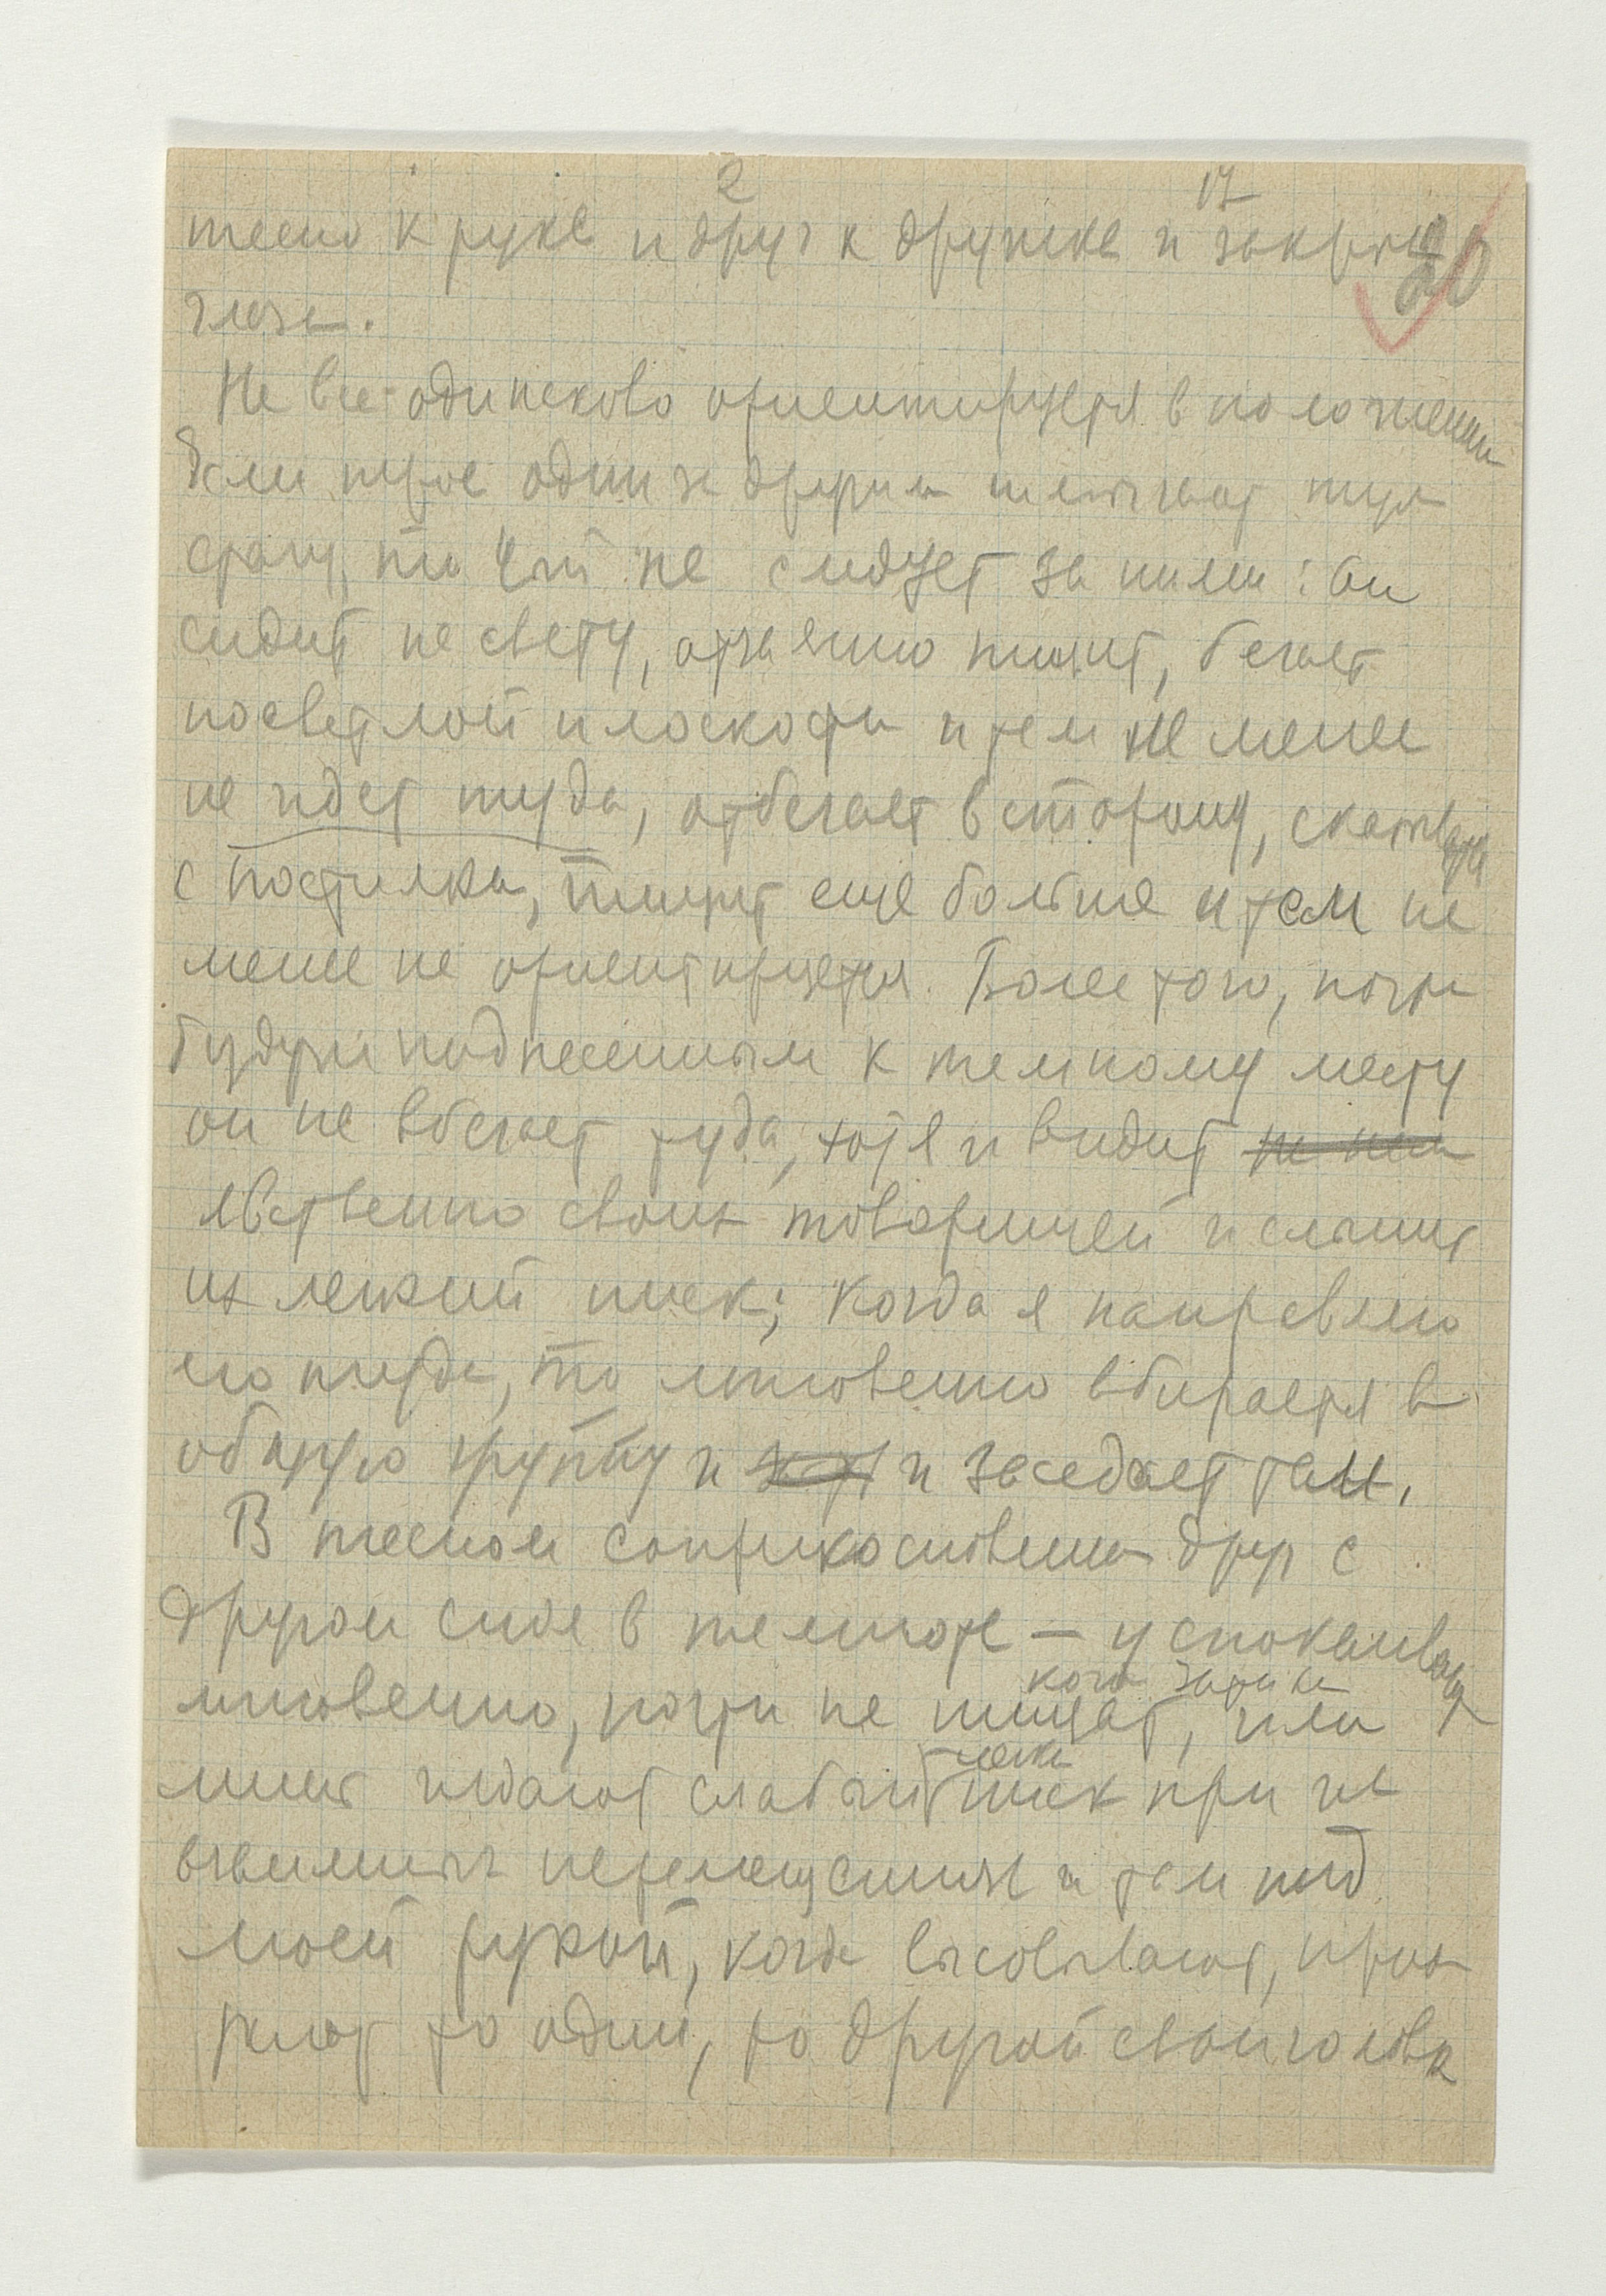 2 17
тесно к руке и друг к дружке и закрыв 20
глаза.
Не все одинаково ориентируются в положении
Если трое один за другим шмыгают туда
сразу, то 4ый не следует за ними: он
сидит на свету, отчаянно пищит, бегает
по светлой плоскости и тем не менее
не идет туда, отбегает в сторону, скатывается
с подстилки, пищит еще больше и тем не
менее не ориентируется. Более того, почти
будучи поднесенным к темному месту
он не вбегает туда, хотя и видит
явственно своих товарищей и слышит
их легкий писк; когда я направляю
его туда, то мгновенно вбирается в
общую группу и и заседает там.
В тесном соприкосновении друг с
другом сидя в темноте — успокаиваются
мгновенно, почти не пищат, или
лишь издают слабый писк при их
взаимных перемещениях и там под
моей рукой, когда высовывают,
то один, то другой свои головки